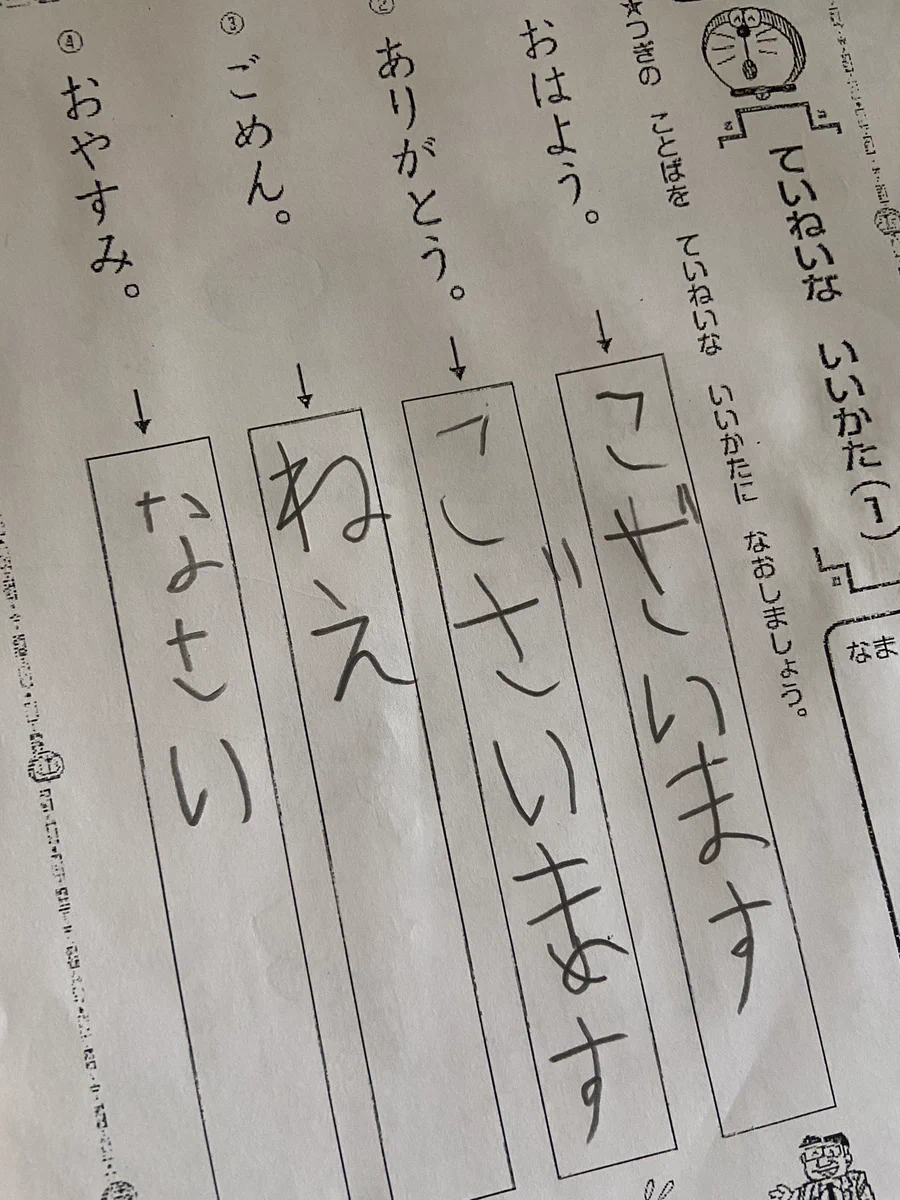 ていねいな いいかた(1)
なま
★つぎの ことばを ていねいな いいかたに なおしましょう。
おはよう。
↓
こざいます
② ありがとう。
↓
こざいます
③ ごめん。
↓
ねえ
④ おやすみ。
↓
なさい